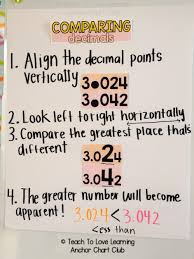 COMPARING
decimals
1. Align the decimal points
vertically
3.024
3.042
2. Look left to right horizontally
3. Compare the greatest place thats
different
3.024
3.042
4. The greater number will become
apparent! 3.024 < 3.042
less than
© Teach To Love Learning
Anchor Chart Club